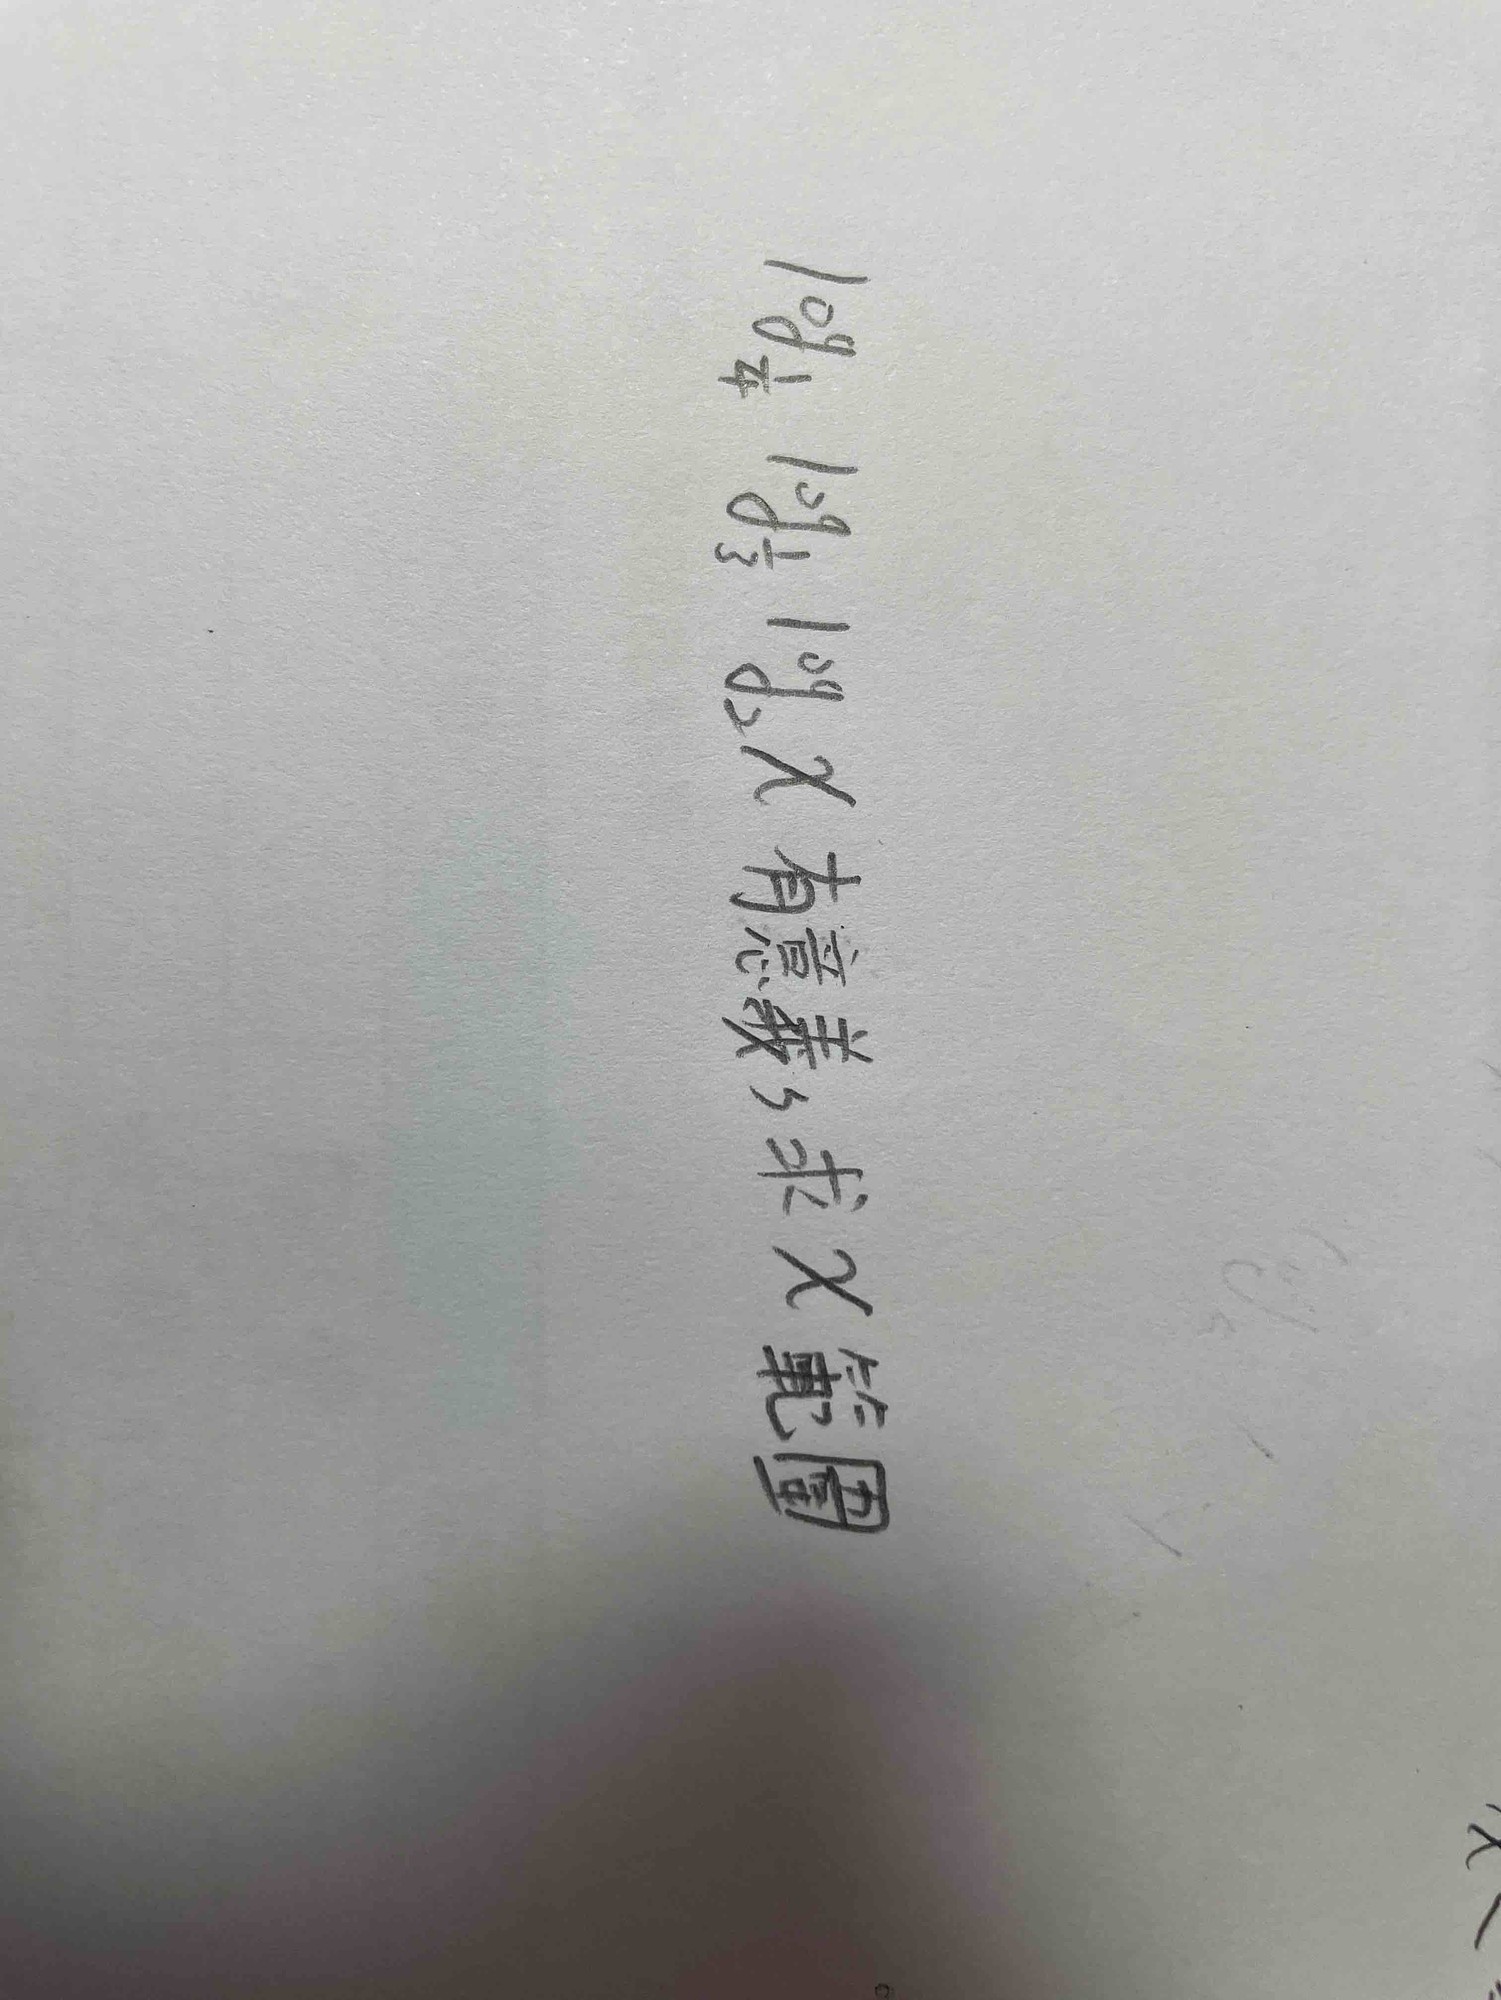 log_{1/4} log_{1/3} log_2 x 有意義，求 x 範圍